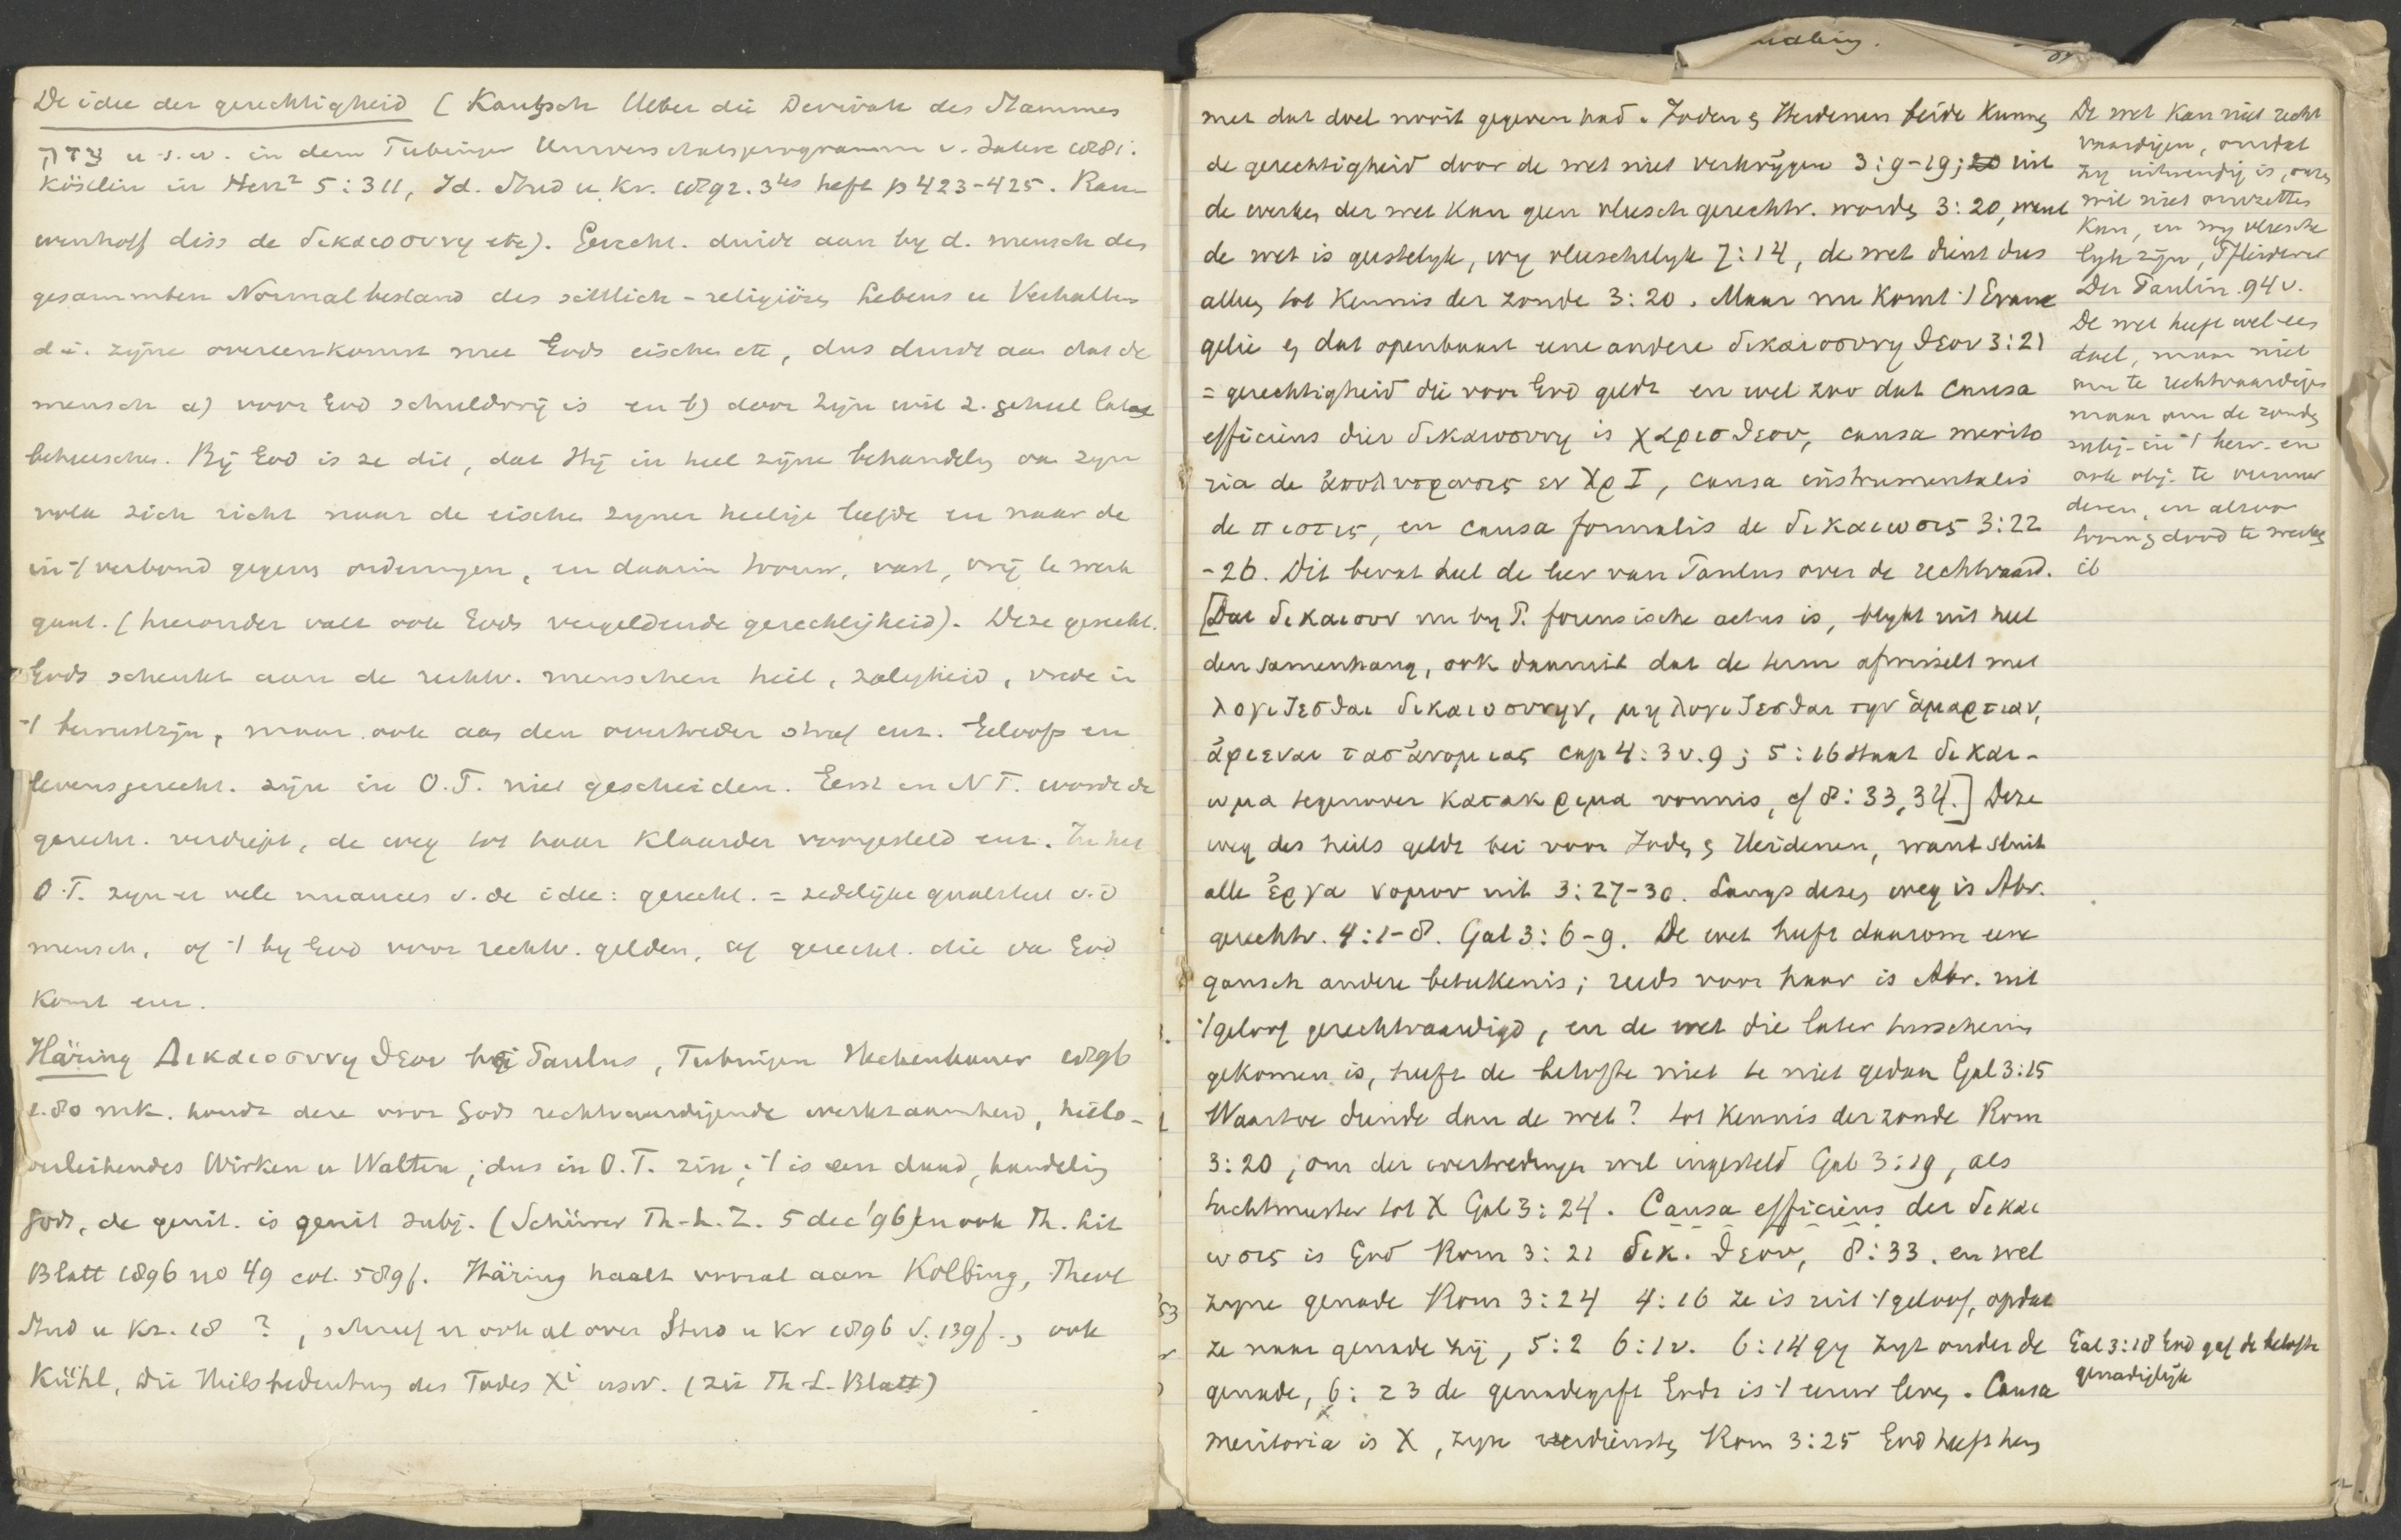 De idee der gerechtigheid (Kautzsch Ueber die Derivate des Stammes
צדק u.s.w. in dem Tübinger Universitätsprogramm v. Jahre 1881.
Köstlin in Herz² 5:311, Id. Stud u. Kr. 1892. 3tes heft p 423-425. Rau
wenhoff diss de δικαιοσυνη etc). Gerecht. duidt aan by d. mensch den
gesammten Normalbestand des sittlich-religiösen Lebens u Verhaltens
d.i. zijne overeenkomst met Gods eischen etc, dus duidt aan dat de
mensch a) voor God schuldvrij is en b) door Zijn wil z. geheel laat
beheerschen. Bij God is ze dit, dat Hij in heel zijne behandeling van zijn
volk zich richt naar de eischen zyner heilige liefde en naar de
in 't verbond gegeven ordeningen, en daarin trouw, vast, vrij te werk
gaat. (hieronder valt ook Gods vergeldende gerechtigheid). Deze gerecht.
Gods schenkt aan de rechtv. menschen heil, zaligheid, vrede in
't bewustzijn, maar ook aan den overtreder straf enz. Geloofs en
levensgerecht. zijn in O.T. niet gescheiden. Eerst in N.T. wordt de
gerecht. verdiept, de weg tot haar klaarder voorgesteld enz. In het
O.T. zyn er vele nuances v. de idee: gerecht. = zedelijke qualiteit v. d
mensch, of 't by God voor rechtv. gelden, of gerecht. die van God
komt enz.
Häring Δικαιοσυνη θεου bij Paulus, Tubingen Heckenhauer 1896
1.80 mk. houdt deze voor Gods rechtvaardigende werkzaamheid, heils-
verleihendes Wirken u Walten; dus in O.T. zin; 't is een daad, handeling
Gods, de genit. is genit subj. (Schürer Th.L.Z. 5 dec '96) en ook Th. Lit
Blatt 1896 no 49 col. 589f. Häring haalt vooral aan Kölbing, Theol
Stud u Kr. 18 ?, schreef er ook al over Stud u Kr 1896 S. 139f., ook
Kühl, Die Heilsbedeutung des Todes Xi usw. (zie Th-L-Blatt)
met dat doel nooit gegeven had. Joden en Heidenen beide kunnen
de gerechtigheid door de wet niet verkrijgen 3:9-19; 20 uit
de werken der wet kan geen vleesch gerechtv. worden 3:20, want
de wet is geestelyk, wy vleeschelyk 7:14, de wet dient dus
alleen tot kennis der zonde 3:20. Maar nu komt 't Evan
gelie en dat openbaart eene andere δικαιοσυνη θεου 3:21
= gerechtigheid die voor God geldt en wel zoo dat causa
efficiens dier δικαιοσυνη is χαρισ θεου, causa merito
ria de ἀπολυτρωσις εν Χρ Ι, causa instrumentalis
de πιστις, en causa formalis de δικαιωσις 3:22
-26. Dit bevat heel de leer van Paulus over de rechtvaard.
[Dat δικαιουν nu by P. forensische actus is, blykt uit heel
den samenhang, ook daaruit dat de term afwisselt met
λογιζεσθαι δικαιοσυνην, μη λογιζεσθαι την ἁμαρτιαν,
ἀφιεναι τασ ἀνομιας cap 4:3 v. 9; 5:16 staat δικαι-
ωμα tegenover κατακριμα vonnis, cf 8:33, 34.] Deze
weg des heils geldt bei voor Joden en Heidenen, want sluit
alle ἐργα νομου uit 3:27-30. Langs dezen weg is Abr.
gerechtv. 4:1-8. Gal 3:6-9. De wet heeft daarom eene
gansch andere beteekenis; reeds voor haar is Abr. uit
't geloof gerechtvaardigd, en de wet die later tusschenin
gekomen is, heeft de belofte niet te niet gedaan Gal 3:15
Waartoe diende dan de wet? tot kennis der zonde Rom
3:20, om der overtredingen wil ingesteld Gal 3:19, als
tuchtmeester tot X Gal 3:24. Causa efficiens der δικαι
ωσις is God Rom 3:21 δικ. θεου, 8:33. en wel
zyne genade Rom 3:24 4:16 ze is uit 't geloof, opdat
ze naar genade zij, 5:2 6:1v. 6:14 gy zyt onder de
genade, 6:23 de genadegift Gods is 't eeuw leven. Causa
meritoria is X, zyne verdiensten Rom 3:25 God heeft hem
De wet kan niet recht
vaardigen, omdat
zy uitwendig is, onzen
wil niet omzetten
kan, en wy vleesche
lyk zijn, Pfleiderer
Der Paulin. 94v.
De wet heeft wel een
doel, maar niet
om te rechtvaardigen
maar om de zonde
subj. in 't herv. en
ook obj. te vermeer
deren, en alzoo
toorn en dood te werken
it
Gal 3:18 God gaf de belofte
genadiglijk